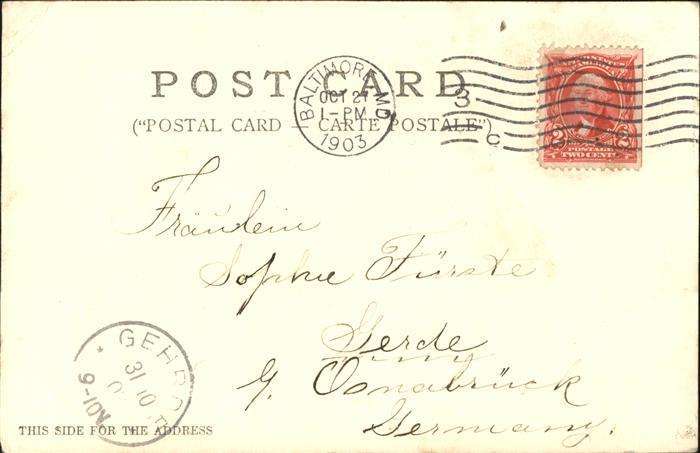 POST CARD
("POSTAL CARD — CARTE POSTALE")
BALTIMORE, MD.
OCT 21
1-PM
1903
3
C
2 2
POSTAGE
TWO CENTS
Fräulein
Sophie Fürste
Gerde
Osnabrück
Germany.
31 10
THIS SIDE FOR THE ADDRESS